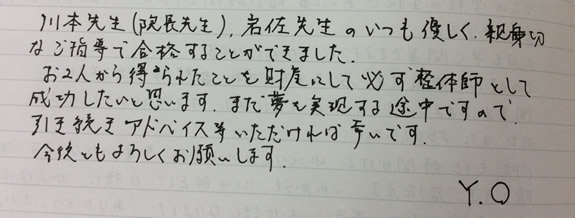 川本先生(院長先生)、岩佐先生のいつも優しく、親身切
なご指導で合格することができました。
お2人から得られたことを財産にして必ず整体師として
成功したいと思います。まだ夢を実現する途中ですので、
引き続きアドバイス等いただければ幸いです。
今後ともよろしくお願いします。
Y.O